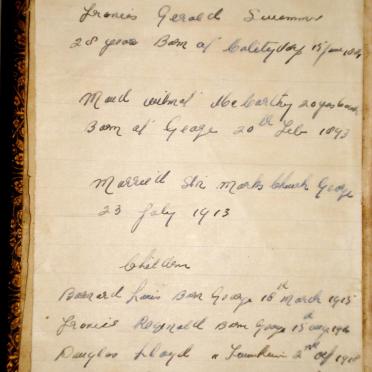 Francis Gerald
28 years Born at 15 June
Maud McCarthy 20 years
Born at George 20th Feb 1893
Married St Marks Church George
23 July 1913
Children
Bernard Louis Born George 16th March 1915
Francis Reginald Born George 15
Douglas Lloyd 2nd 1918